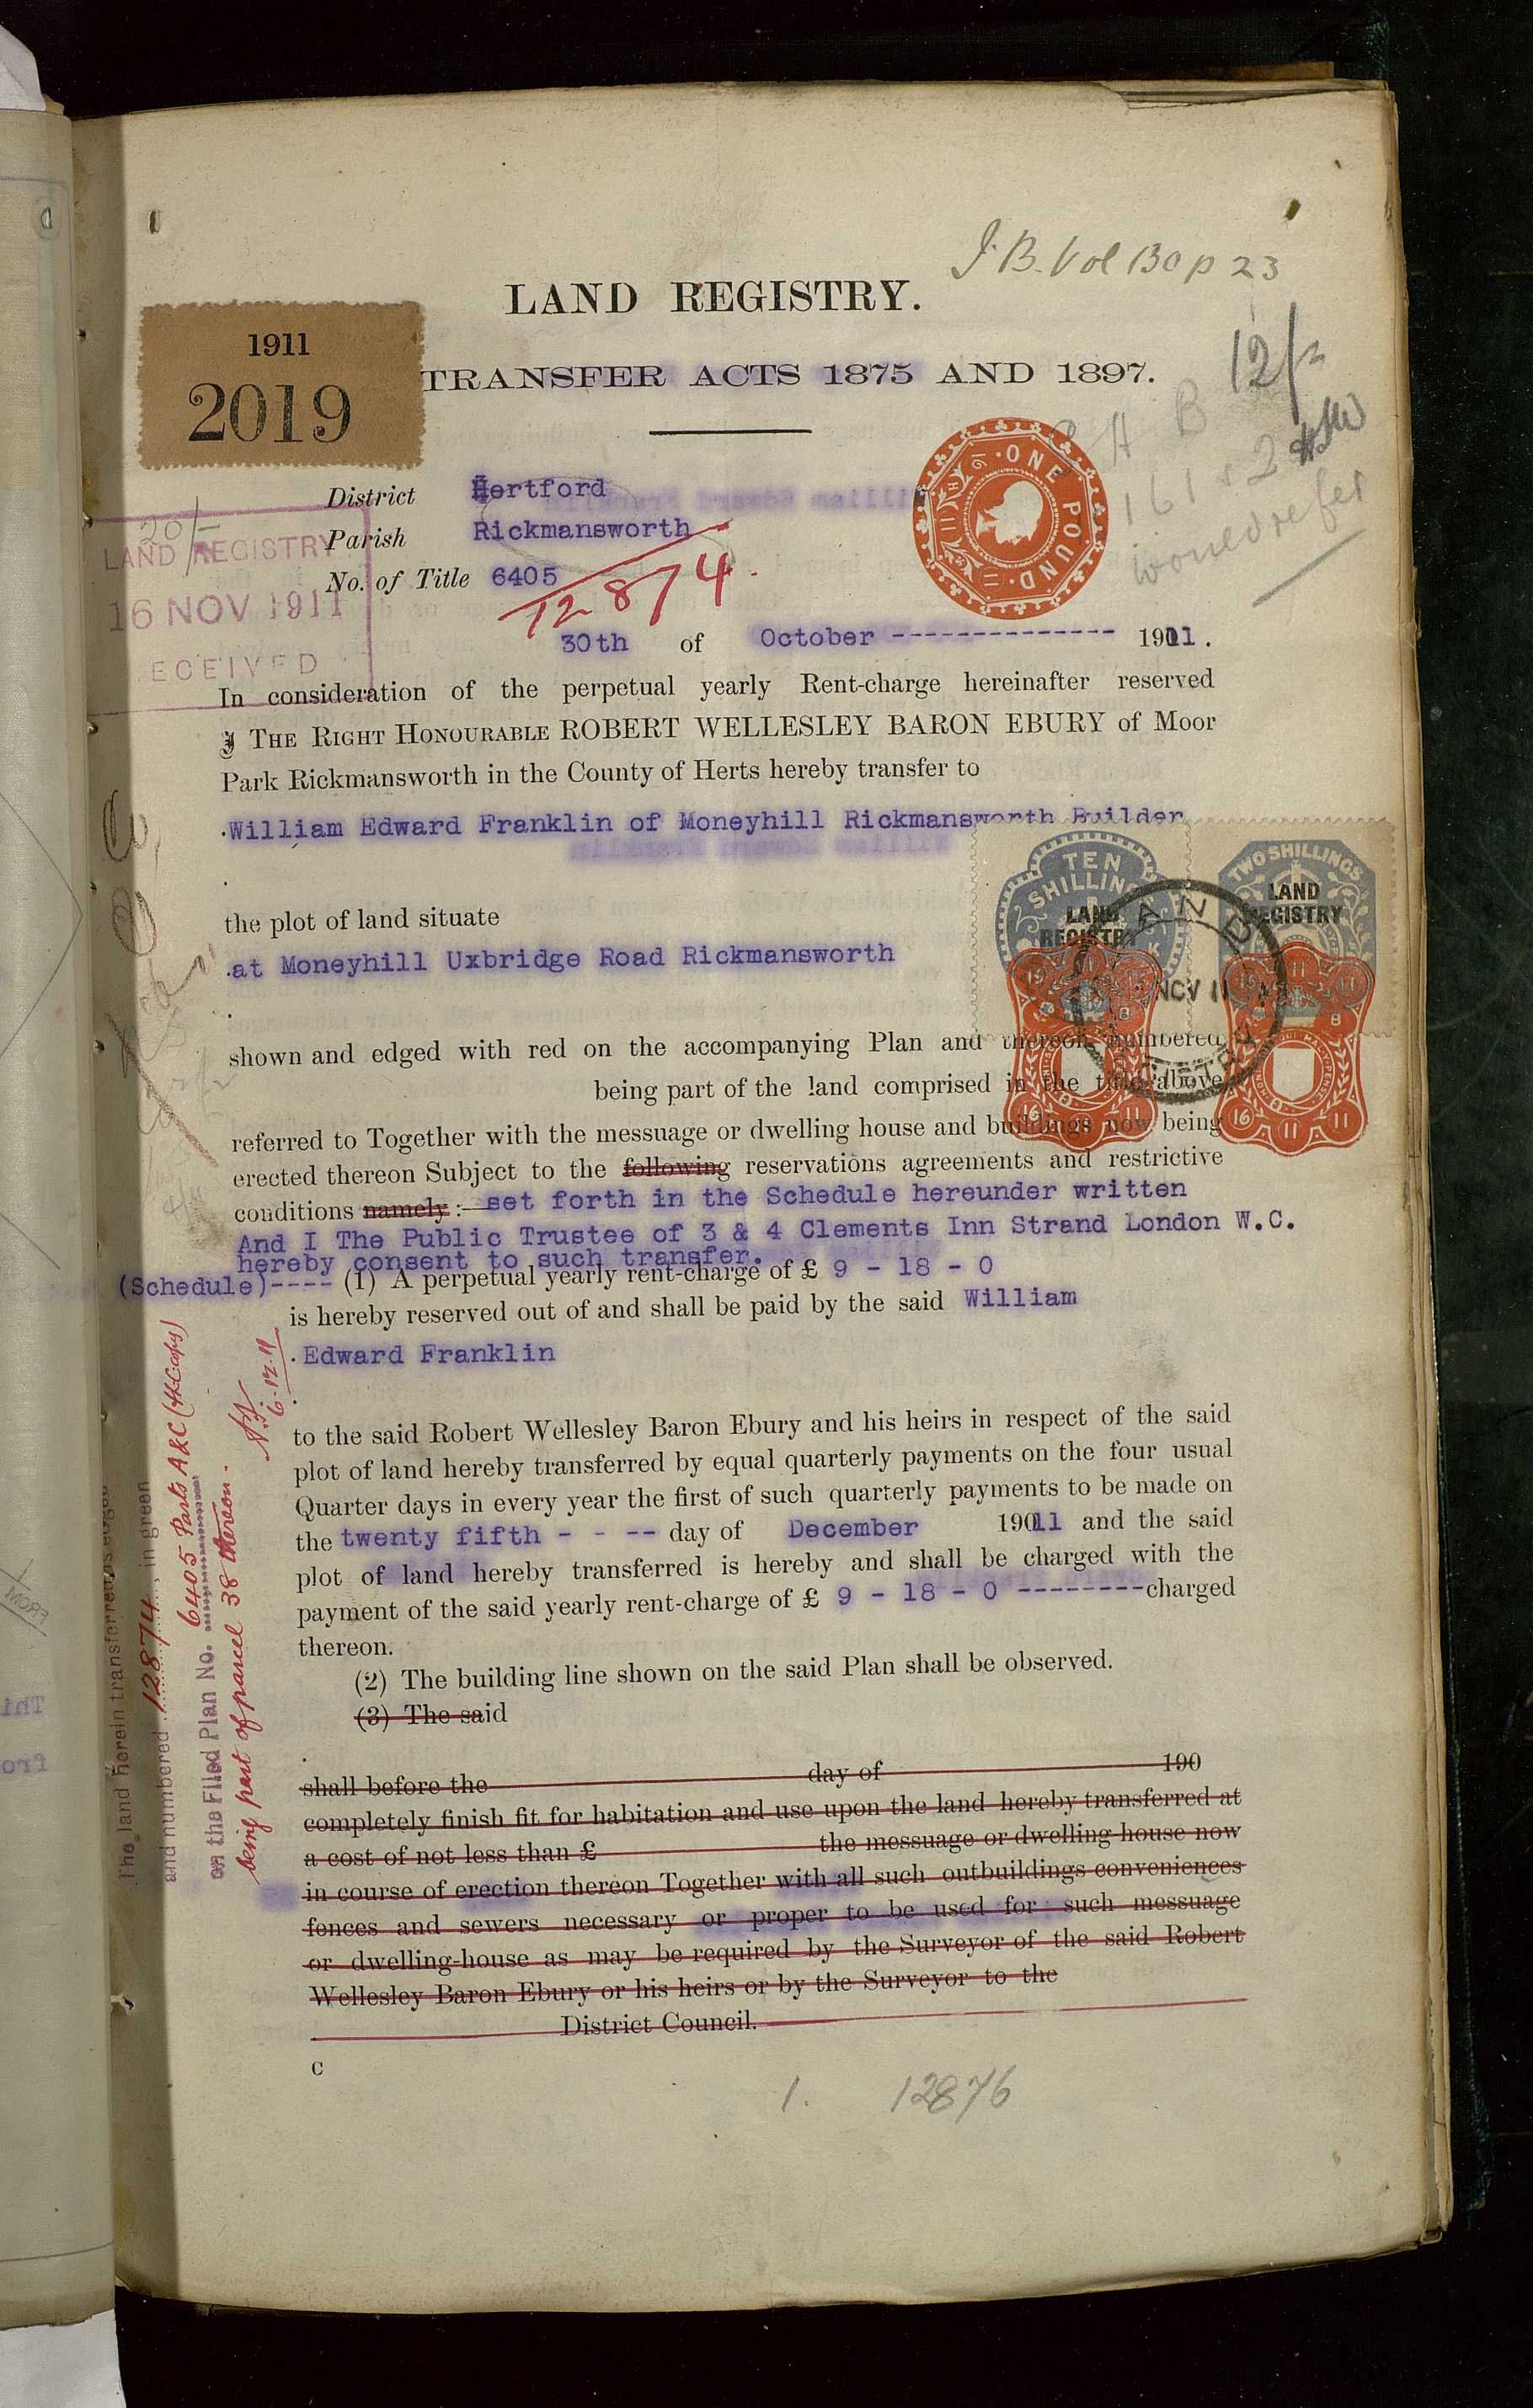 J.B. Vol B0 p 23
LAND REGISTRY.
1911
2019
TRANSFER ACTS 1875 AND 1897.
12/-
ONE POUND
would refer
District Hertford
Parish Rickmansworth
No. of Title 6405
12874.
20/-
LAND REGISTRY
16 NOV 1911
RECEIVED
30th of October --------------- 1911.
In consideration of the perpetual yearly Rent-charge hereinafter reserved
I THE RIGHT HONOURABLE ROBERT WELLESLEY BARON EBURY of Moor
Park Rickmansworth in the County of Herts hereby transfer to
William Edward Franklin of Moneyhill Rickmansworth Builder
TEN SHILLINGS
LAND REGISTRY
TWO SHILLINGS
LAND REGISTRY
NOV 11
the plot of land situate
at Moneyhill Uxbridge Road Rickmansworth
shown and edged with red on the accompanying Plan and thereon numbered
being part of the land comprised in the title above
referred to Together with the messuage or dwelling house and buildings now being
erected thereon Subject to the following reservations agreements and restrictive
conditions namely :— set forth in the Schedule hereunder written
And I The Public Trustee of 3 & 4 Clements Inn Strand London W.C.
hereby consent to such transfer.
(Schedule)---- (1) A perpetual yearly rent-charge of £ 9 - 18 - 0
is hereby reserved out of and shall be paid by the said William
Edward Franklin
to the said Robert Wellesley Baron Ebury and his heirs in respect of the said
plot of land hereby transferred by equal quarterly payments on the four usual
Quarter days in every year the first of such quarterly payments to be made on
the twenty fifth - - -- day of December 1911 and the said
plot of land hereby transferred is hereby and shall be charged with the
payment of the said yearly rent-charge of £ 9 - 18 - 0 --------charged
thereon.
(2) The building line shown on the said Plan shall be observed.
(3) The said
shall before the day of 190
completely finish fit for habitation and use upon the land hereby transferred at
a cost of not less than £ the messuage or dwelling house now
in course of erection thereon Together with all such outbuildings conveniences
fences and sewers necessary or proper to be used for such messuage
or dwelling-house as may be required by the Surveyor of the said Robert
Wellesley Baron Ebury or his heirs or by the Surveyor to the
District Council.
C
1. 12876
The land herein transferred is edged
and numbered 12874, in green
on the Filed Plan No. 6405 Parts A&C
being part of parcel 38 thereon.
6.12.11